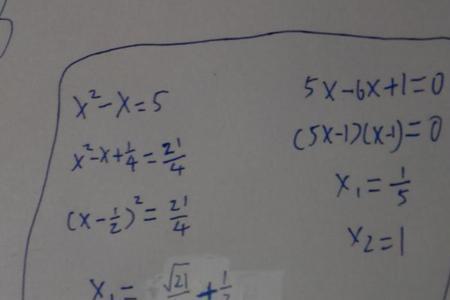 x²-x=5
x²-x+1/4=21/4
(x-1/2)²=21/4
x₁=√21/ +1/2
5x-6x+1=0
(5x-1)(x-1)=0
x₁=1/5
x₂=1